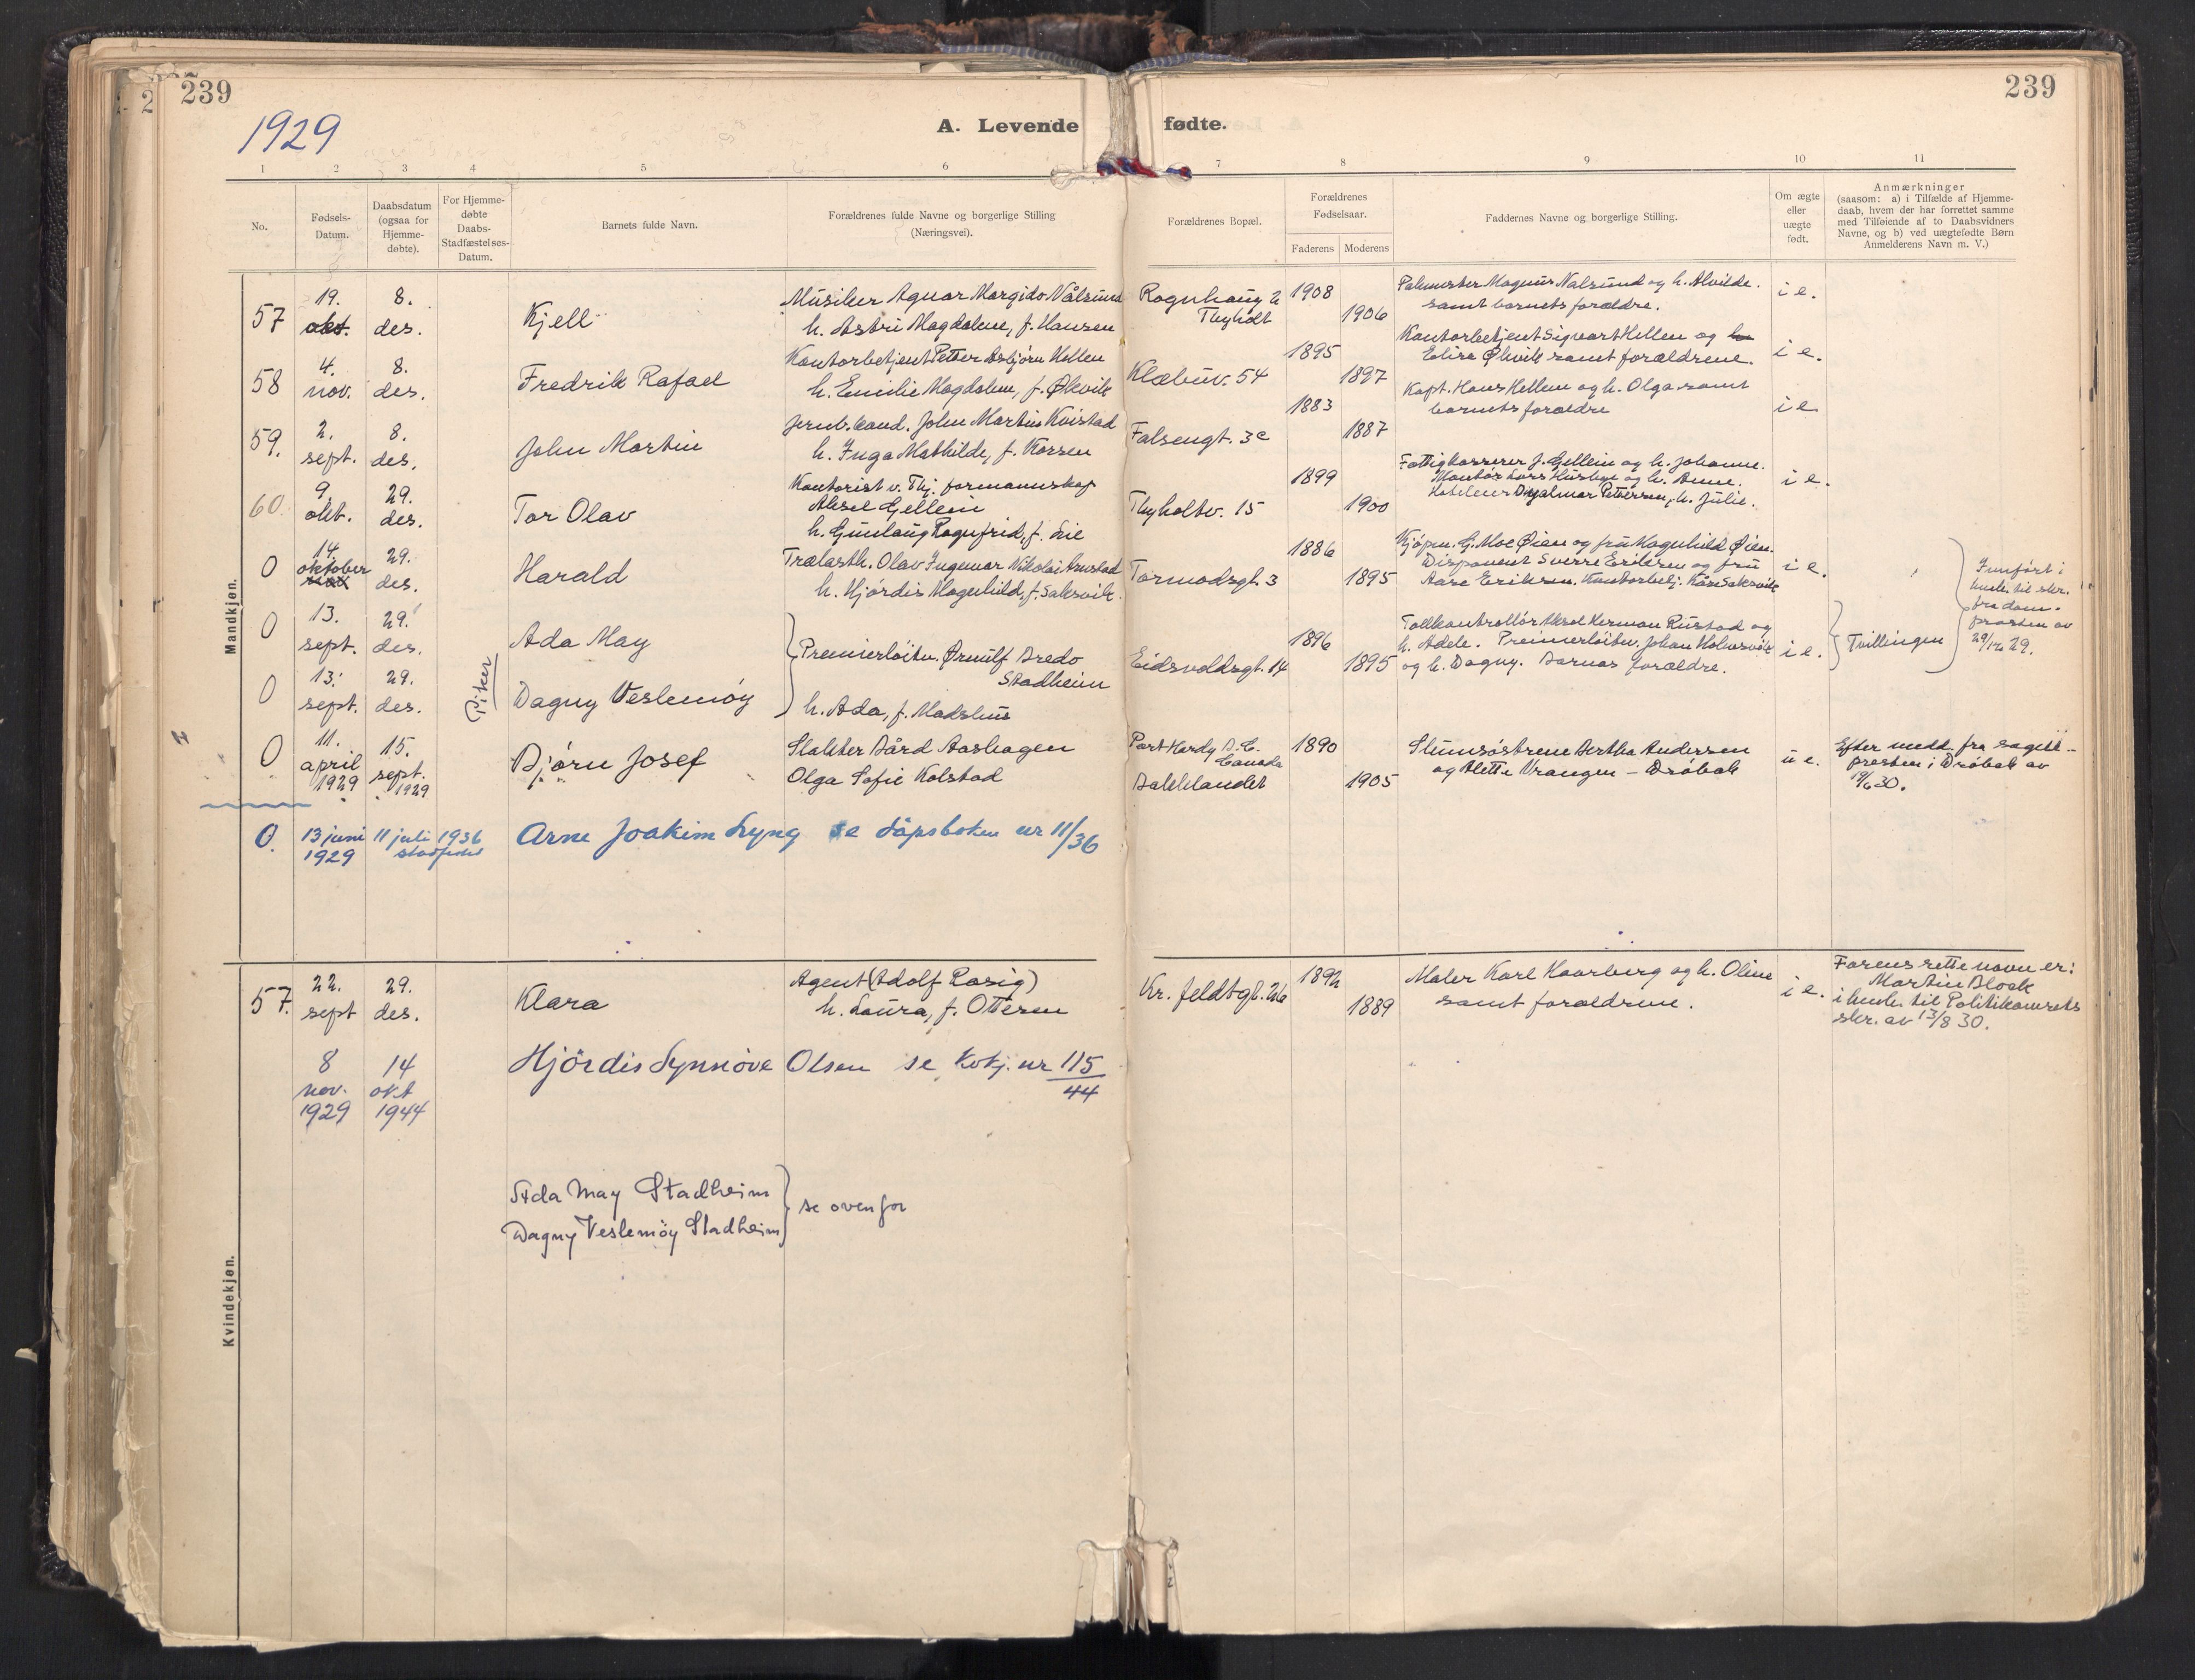 239
239
1929
A. Levende fødte.
1 2 3 4 5 6 7 8 9 10 11
No.
Fødsels-
Datum.
Daabsdatum
(ogsaa for
Hjemme-
døbte).
For Hjemme-
døbte
Daabs-
Stadfæstelses-
Datum.
Barnets fulde Navn.
Forældrenes fulde Navne og borgerlige Stilling
(Næringsvei).
Forældrenes Bopæl.
Forældrenes
Fødselsaar.
Faderens Moderens
Faddernes Navne og borgerlige Stilling.
Om ægte
eller
uægte
født.
Anmærkninger
(saasom: a) i Tilfælde af Hjemme-
daab, hvem der har forrettet samme
med Tilføiende af to Daabsvidners
Navne, og b) ved uægtefødte Børn
Anmelderens Navn m. V.)
Mandkjøn.
57 19. okt. 8. des. Kjell
Musiker Agnar Margido Nålsund
h. Astri Magdalene, f. Hansen
Rognhaug 2
Thyholt
1908 1906
Magnus Nalsund og h. Alvilde.
samt barnets forældre.
i e.
58 4. nov. 8. des. Fredrik Rafael
Kontorbetjent Petter Asbjørn Hellem
h. Emilie Magdalene, f. Økvik
Klæbuv. 54
1895 1897
Kontorbetjent Sigvart Hellem og
Elise Økvik samt forældrene.
i e.
59. 2. sept. 8. des. John Martin
Jernb.kond. John Martin Kvistad
h. Inga Mathilde, f. Korsen
Falsengt. 3c
1883 1887
Kapt. Hans Hellem og h. Olga samt
barnets forældre
i e
60. 9. okt. 29. des. Tor Olav
Kontorist v. Thj. formannskap
Aksel Gjellein
h. Gunlaug Ragnfrid, f. Lie
Thyholtv. 15
1899 1900
Fattigkasserer J. Gjellein og h. Johanne.
Lars Husbye og h. Anne.
Hjalmar Pettersen, h. Julie.
i e.
0 14. oktober 29. des. Harald
Trælasth. Olav Ingemar Nikolai
h. Hjørdis Magnhild, f. Saksvik.
Tormodsgt. 3
1886 1895
Kjøpm. G. Moe Øien og fru Magnhild Øien.
Disponent Sverre Eriksen og fru
Aase Eriksen. Kontorbetj. Kåre Saksvik
i e.
Innført i
henh. til skr.
fra dom-
prosten av
29/12 29.
0 13. sept. 29. des. Ada May
Piker
Premierløitn. Ørnulf Bredo
Stadheim
h. Ada, f. Madshus
Eidsvoldsgt. 14
1896 1895
Tollkontrollør Aksel Herman Rustad og
h. Adele. Premierløitn. Johan Holmsvik
og h. Dagny. Barnas forældre.
i e.
Tvillinger
0 13. sept. 29. des. Dagny Veslemøy
0 11. april 1929 15. sept. 1929 Bjørn Josef
Slakter Bård Aashagen
Olga Sofie Kolstad
Port Hardy B.C.
Canada
Bakklandet
1890 1905
Slumsøstrene Bertha Andersen
og Alette Vrangen – Drøbak
u e.
Efter medd. fra sogne-
presten i Drøbak av
19/6 30.
0. 13 juni 1929 11 juli 1936
stadfestet
Arne Joakim Lyng se dåpsboken nr 11/36
Kvindekjøn.
57. 22. sept 29. des. Klara
Agent (Adolf Rosig)
h. Laura, f. Ottesen
Kr. feldtgt. 26
1892 1889
Maler Karl Haarberg og h. Oline
samt forældrene.
i e.
Farens rette navn er:
Martin Block
i henh. til Politikamrets
skr. av 13/8 30.
8 nov. 1929 14 okt 1944 Hjördis Synnöve Olsen se Kvkj. nr 115/44
Ada May Stadheim
Dagny Veslemöy Stadheim
se ovenfor